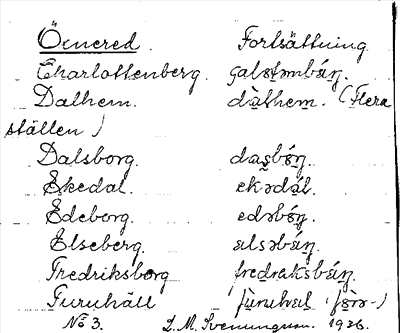 Öcnered. Fortsättning
Charlottenberg. ɕalotəmbáŋ.
Dalhem. dàlhem. (Flera
ställen)
Dalsborg. dasbóŋ.
Ekedal. ekədál.
Edeborg. edəbóŋ.
Elseberg. elsəbáŋ.
Fredriksborg fredraksbáŋ.
Furuhäll
No 3. L.M. Svenungsson. 1936.